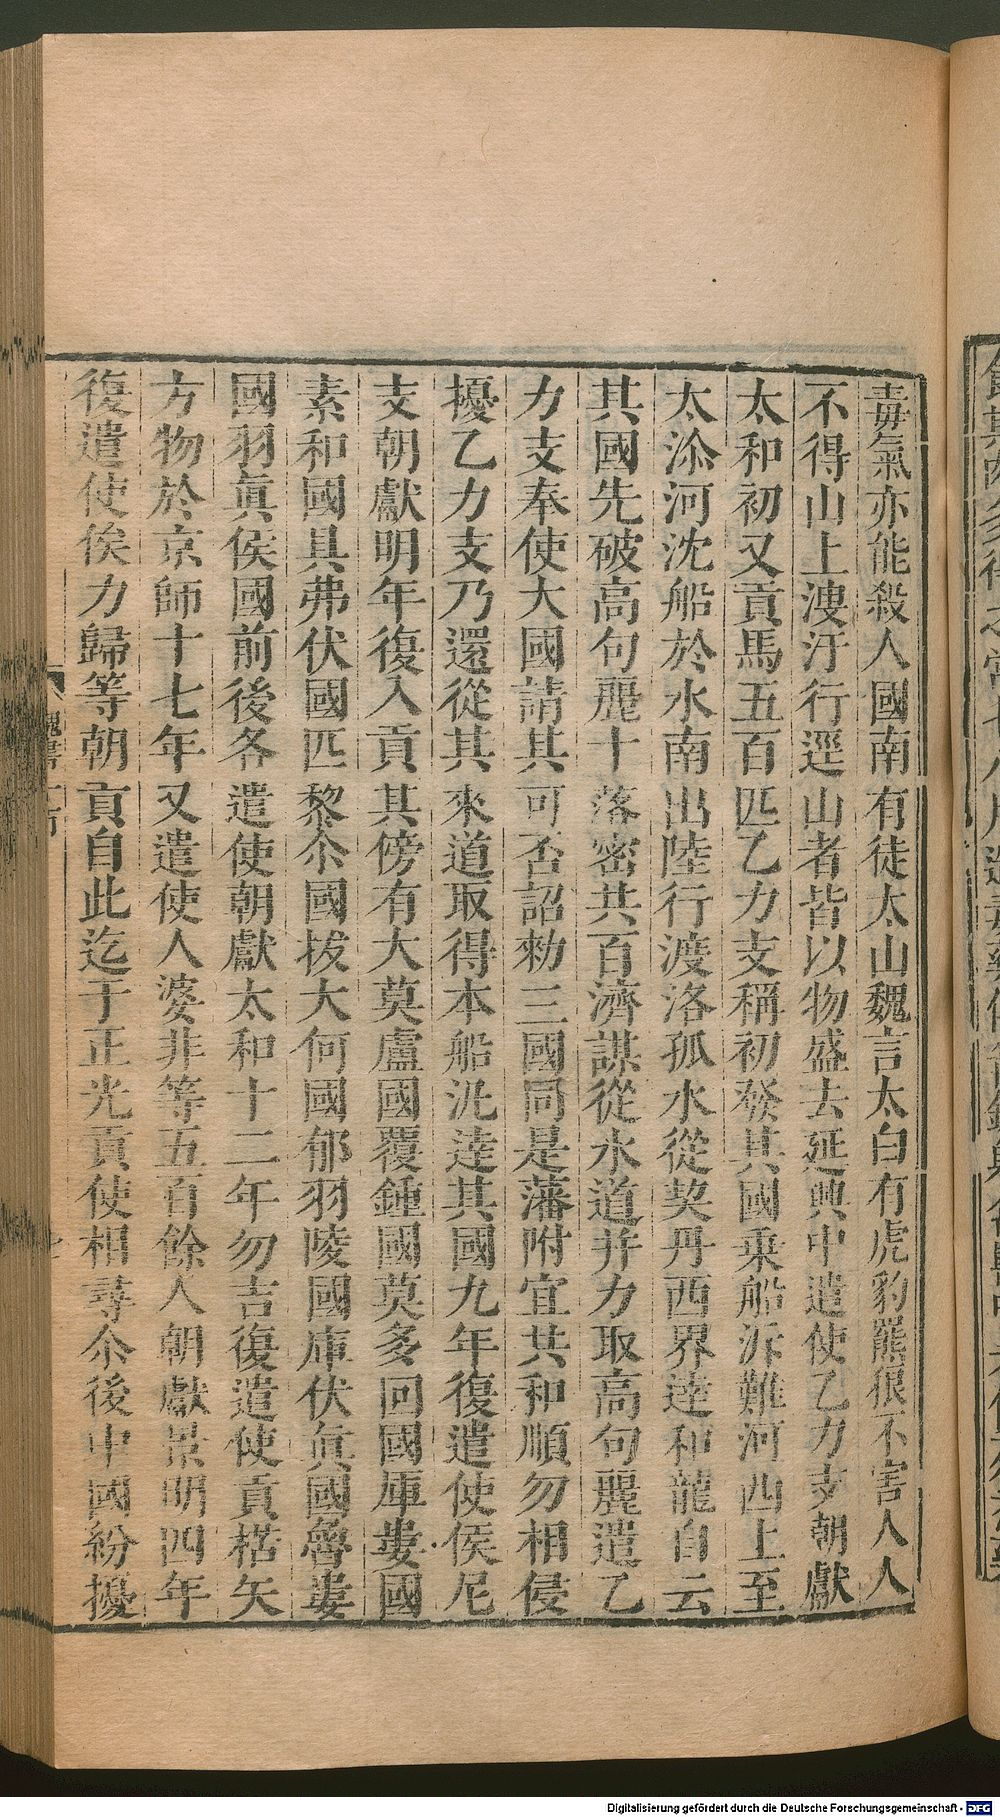 毒氣亦能殺人國南有徒太山魏言太白有虎豹羆狼不害人人
不得山上溲汙行逕山者皆以物盛去延興中遣使乙力支朝獻
太和初又貢馬五百匹乙力支稱初發其國乘船泝難河西上至
太沵河沈船於水南出陸行渡洛孤水從契丹西界達和龍自云
其國先破高句麗十落密共百濟謀從水道并力取高句麗遣乙
力支奉使大國請其可否詔勑三國同是藩附宜共和順勿相侵
擾乙力支乃還從其來道取得本船汎達其國九年復遣使侯尼
支朝獻明年復入貢其傍有大莫盧國覆鍾國莫多回國庫婁國
素和國具弗伏國匹黎尒國拔大何國郁羽陵國庫伏真國魯婁
國羽眞侯國前後各遣使朝獻太和十二年勿吉復遣使貢楛矢
方物於京師十七年又遣使人婆非等五百餘人朝獻景明四年
復遣使俟力歸等朝貢自此迄于正光貢使相尋尒後中國紛擾
魏書一百
Digitalisierung gefördert durch die Deutsche Forschungsgemeinschaft - DFG